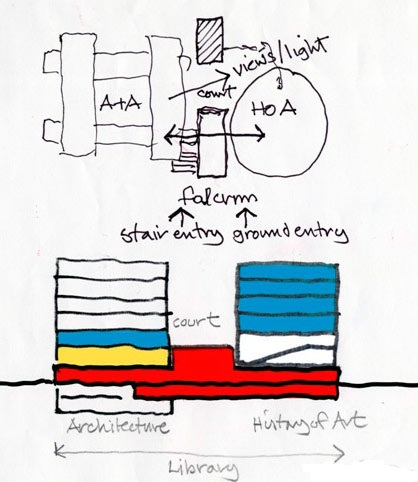 views/light
A+A
court
HOA
falcrum
stair entry ground entry
court
Architecture
History of Art
Library